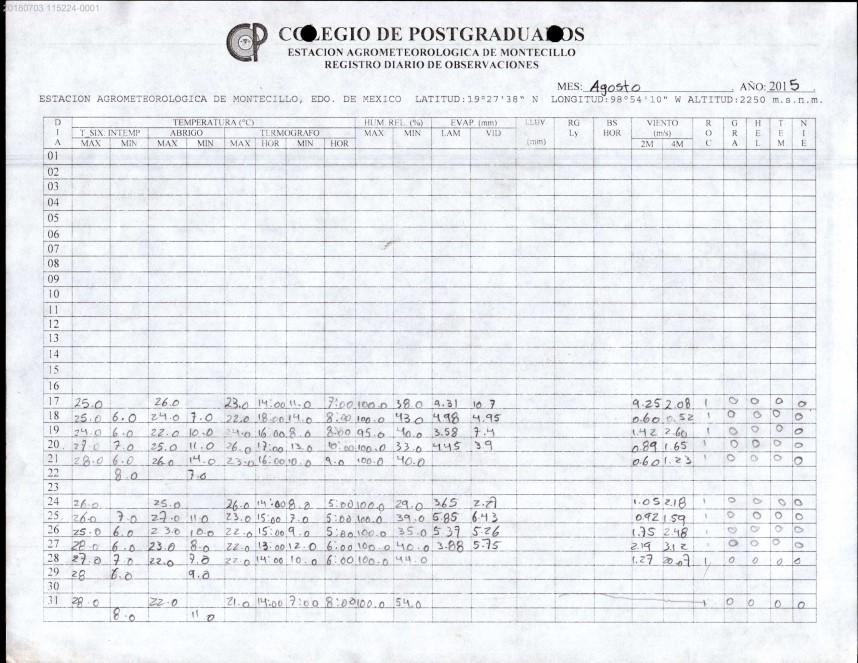 20180703 115224-0001
COLEGIO DE POSTGRADUADOS
ESTACION AGROMETEOROLOGICA DE MONTECILLO
REGISTRO DIARIO DE OBSERVACIONES
MES: Agosto AÑO: 2015.
ESTACION AGROMETEOROLOGICA DE MONTECILLO, EDO. DE MEXICO LATITUD:19°27'38" N LONGITUD:98°54'10" W ALTITUD:2250 m.s.n.m.
DIA TEMPERATURA (°C) HUM. REL. (%) EVAP (mm) LLUV (mm) RG Ly BS HOR VIENTO (m/s) ROC GRA HEL TEM NIE
T_SIX: INTEMP ABRIGO TERMOGRAFO MAX MIN LAM VID 2M 4M
MAX MIN MAX MIN MAX HOR MIN HOR
01
02
03
04
05
06
07
08
09
10
11
12
13
14
15
16
17 25.0 26.0 23.0 14:00 11.0 7:00 100.0 38.0 9.31 10.7 9.25 2.08 1 0 0 0 0
18 25.0 6.0 24.0 7.0 22.0 18:00 14.0 8:00 100.0 43.0 4.98 4.95 0.60 0.52 1 0 0 0 0
19 24.0 6.0 22.0 10.0 24.0 16:00 8.0 8:00 95.0 40.0 3.58 7.4 1.42 2.60 1 0 0 0 0
20 27.0 7.0 25.0 11.0 26.0 17:00 13.0 10:00 100.0 33.0 4.45 3.9 0.89 1.65 1 0 0 0 0
21 28.0 6.0 26.0 14.0 23.0 16:00 10.0 9.0 100.0 40.0 0.60 1.23 1 0 0 0 0
22 8.0 7.0
23
24 26.0 25.0 26.0 14:00 8.0 5:00 100.0 29.0 3.65 1.05 2.18 1 0 0 0 0
25 26.0 7.0 27.0 11.0 23.0 15:00 7.0 5:00 100.0 39.0 5.85 6.43 0.92 1.59 1 0 0 0 0
26 25.0 6.0 23.0 10.0 22.0 15:00 9.0 5:00 100.0 35.0 5.37 5.26 1.75 2.48 1 0 0 0 0
27 28.0 6.0 23.0 8.0 22.0 13:00 12.0 6:00 100.0 40.0 3.88 5.75 2.19 3.12 1 0 0 0 0
28 27.0 7.0 22.0 9.0 22.0 14:00 10.0 6:00 100.0 44.0 1.27 20.07 1 0 0 0 0
29 28 6.0 9.0
30
31 28.0 22.0 21.0 14:00 7:00 8:00 100.0 54.0 1 0 0 0 0
8.0 11.0